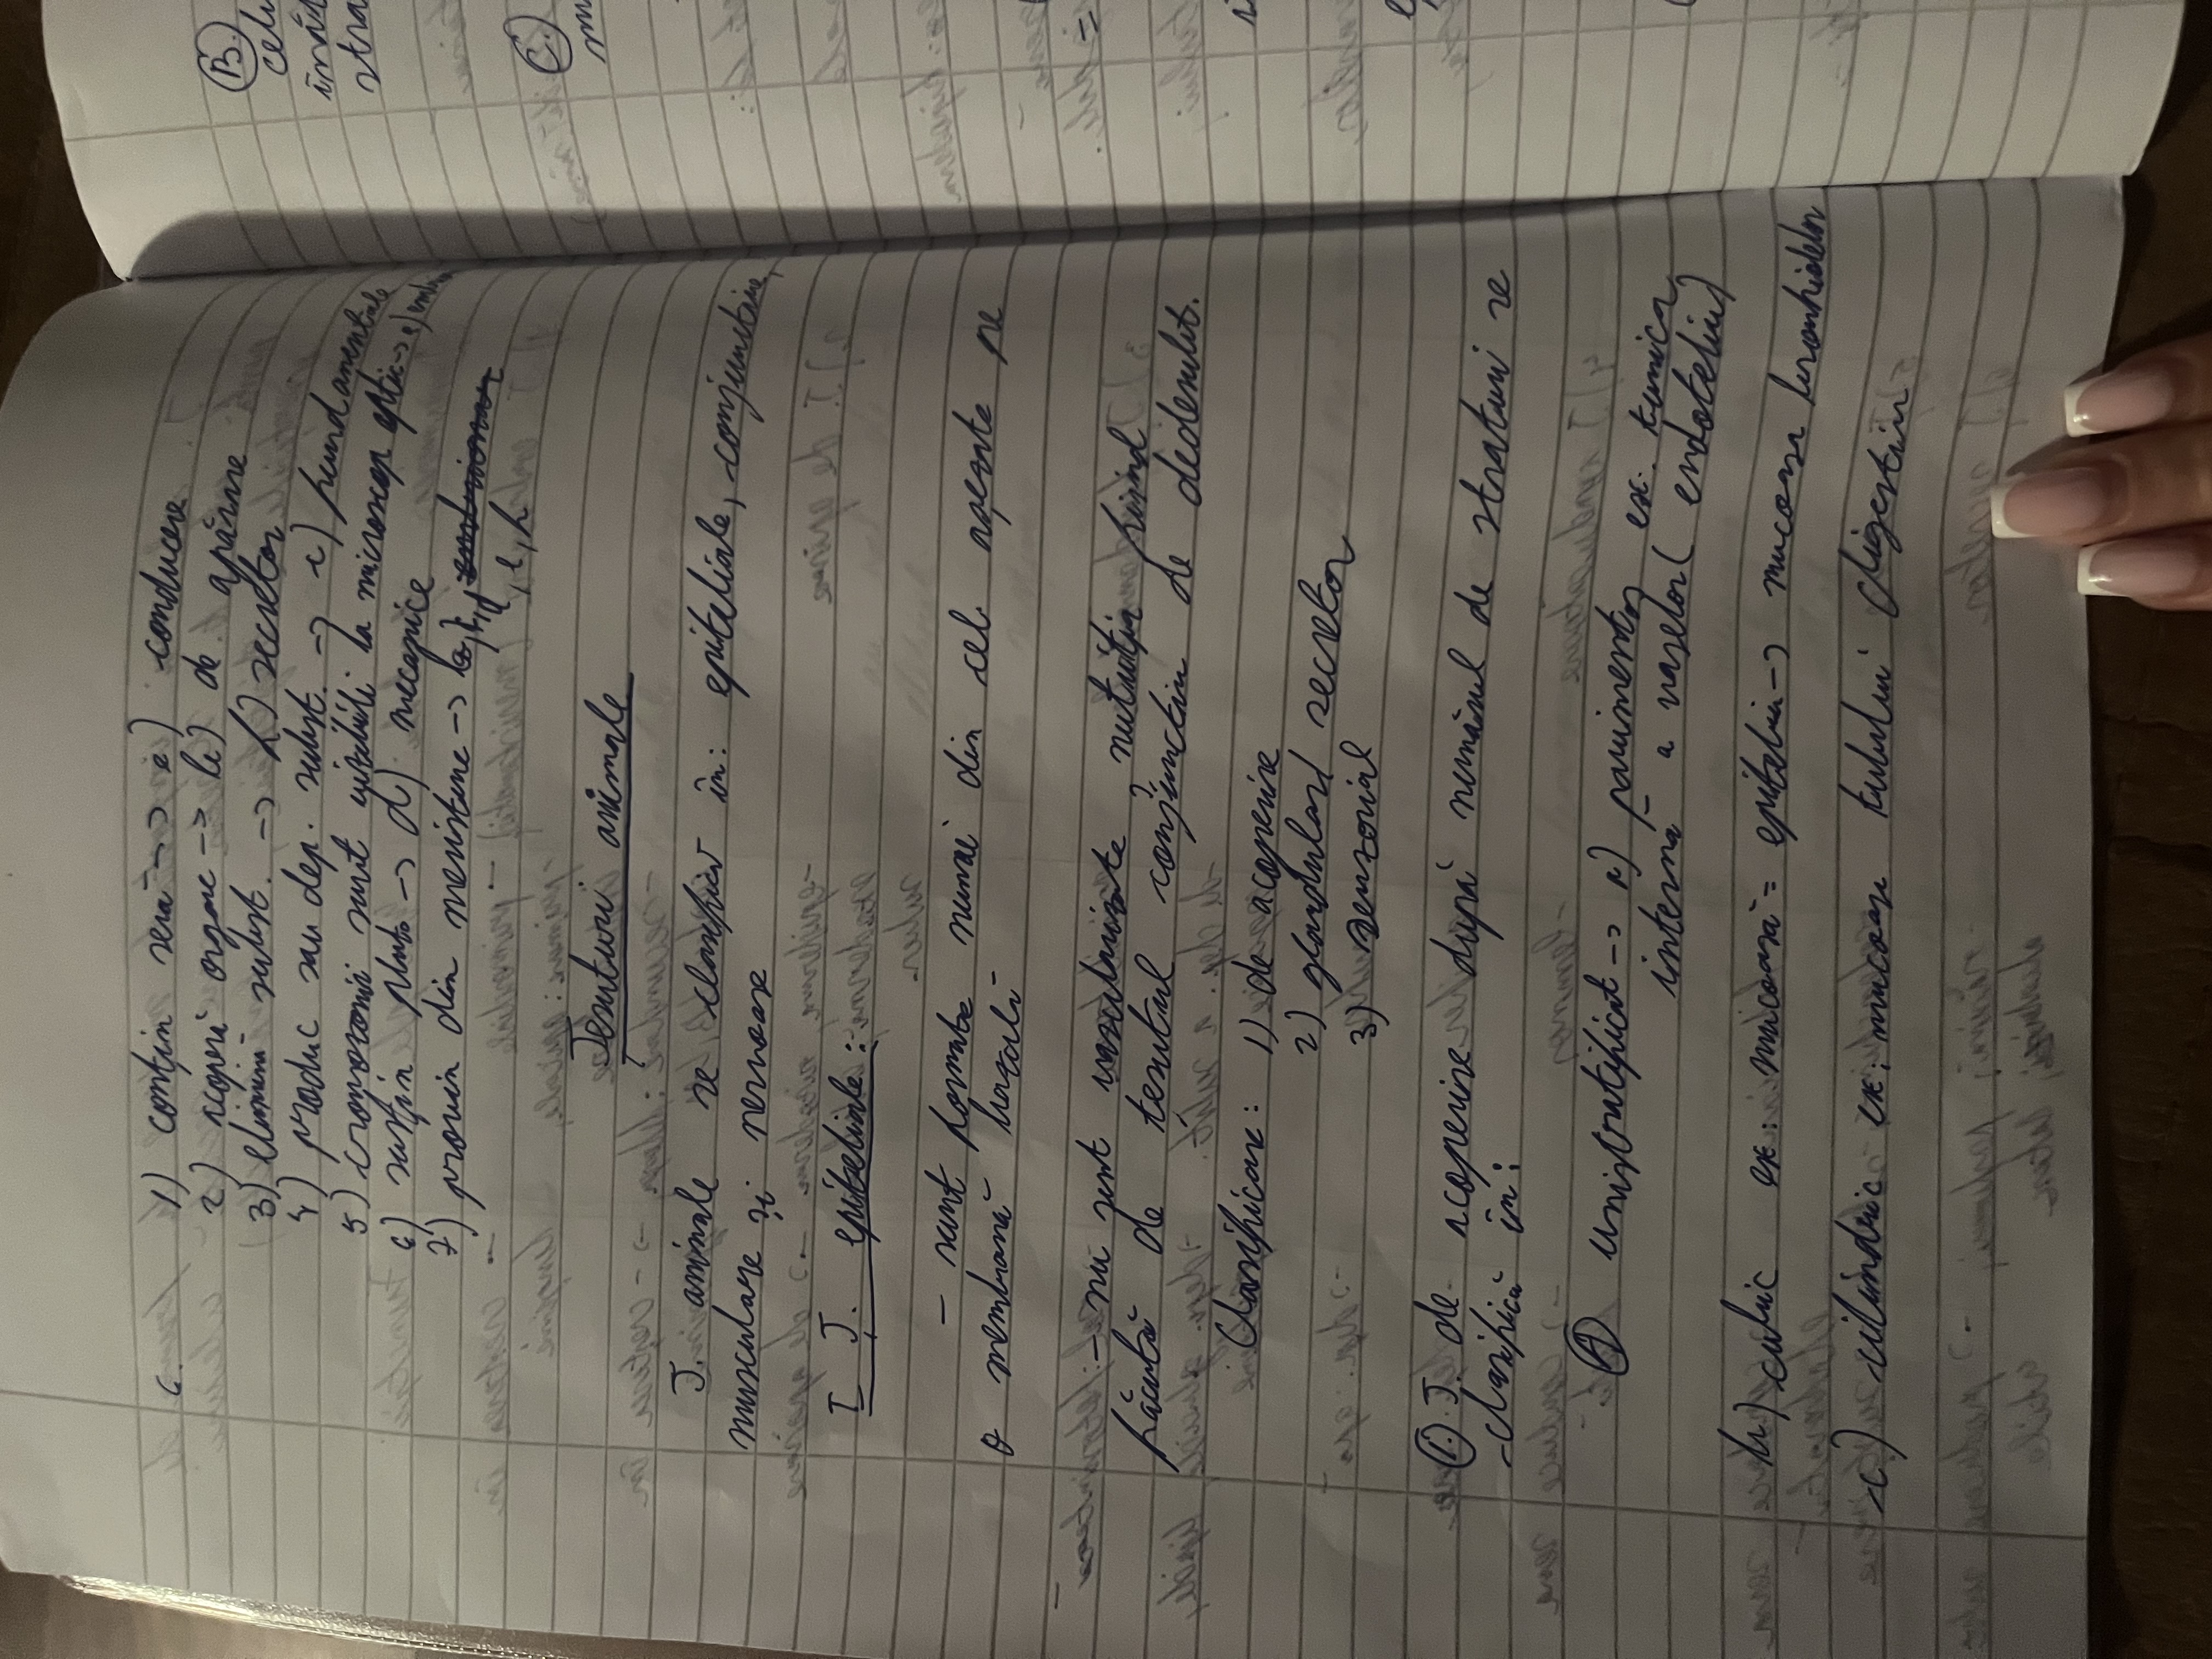 6. 1) conțin sevă -> a) conducere
2) acoperi organe -> b) de apărare
3) elimină subst. -> h) secretor
4) produc sau dep. subst. -> c) fundamentale
5) cromozomii sunt vizibili la microscop optic ->
6) susțin planta -> d) mecanice
7) provin din meristeme ->
Țesuturi animale
T. animale se clasifică în: epiteliale, conjunctive,
musculare și nervoase
I T. epiteliale:
- sunt formate numai din cel. așezate pe
o membrană bazală
- nu sunt vascularizate nutriția fiind
făcută de țesutul conjunctiv de dedesubt.
Clasificare: 1) de acoperire
2) glandulard secretor
3) senzorial
1. T. de acoperire după numărul de straturi se
clasifică în:
A unistratificat -> a) pavimentos ex: tunica
internă a vaselor (endoteliu)
b) cubic ex: mucoasă = epiteliu -> mucoasa bronhiolelor
c) cilindric ex: mucoasa tubului digestiv
B.
C.